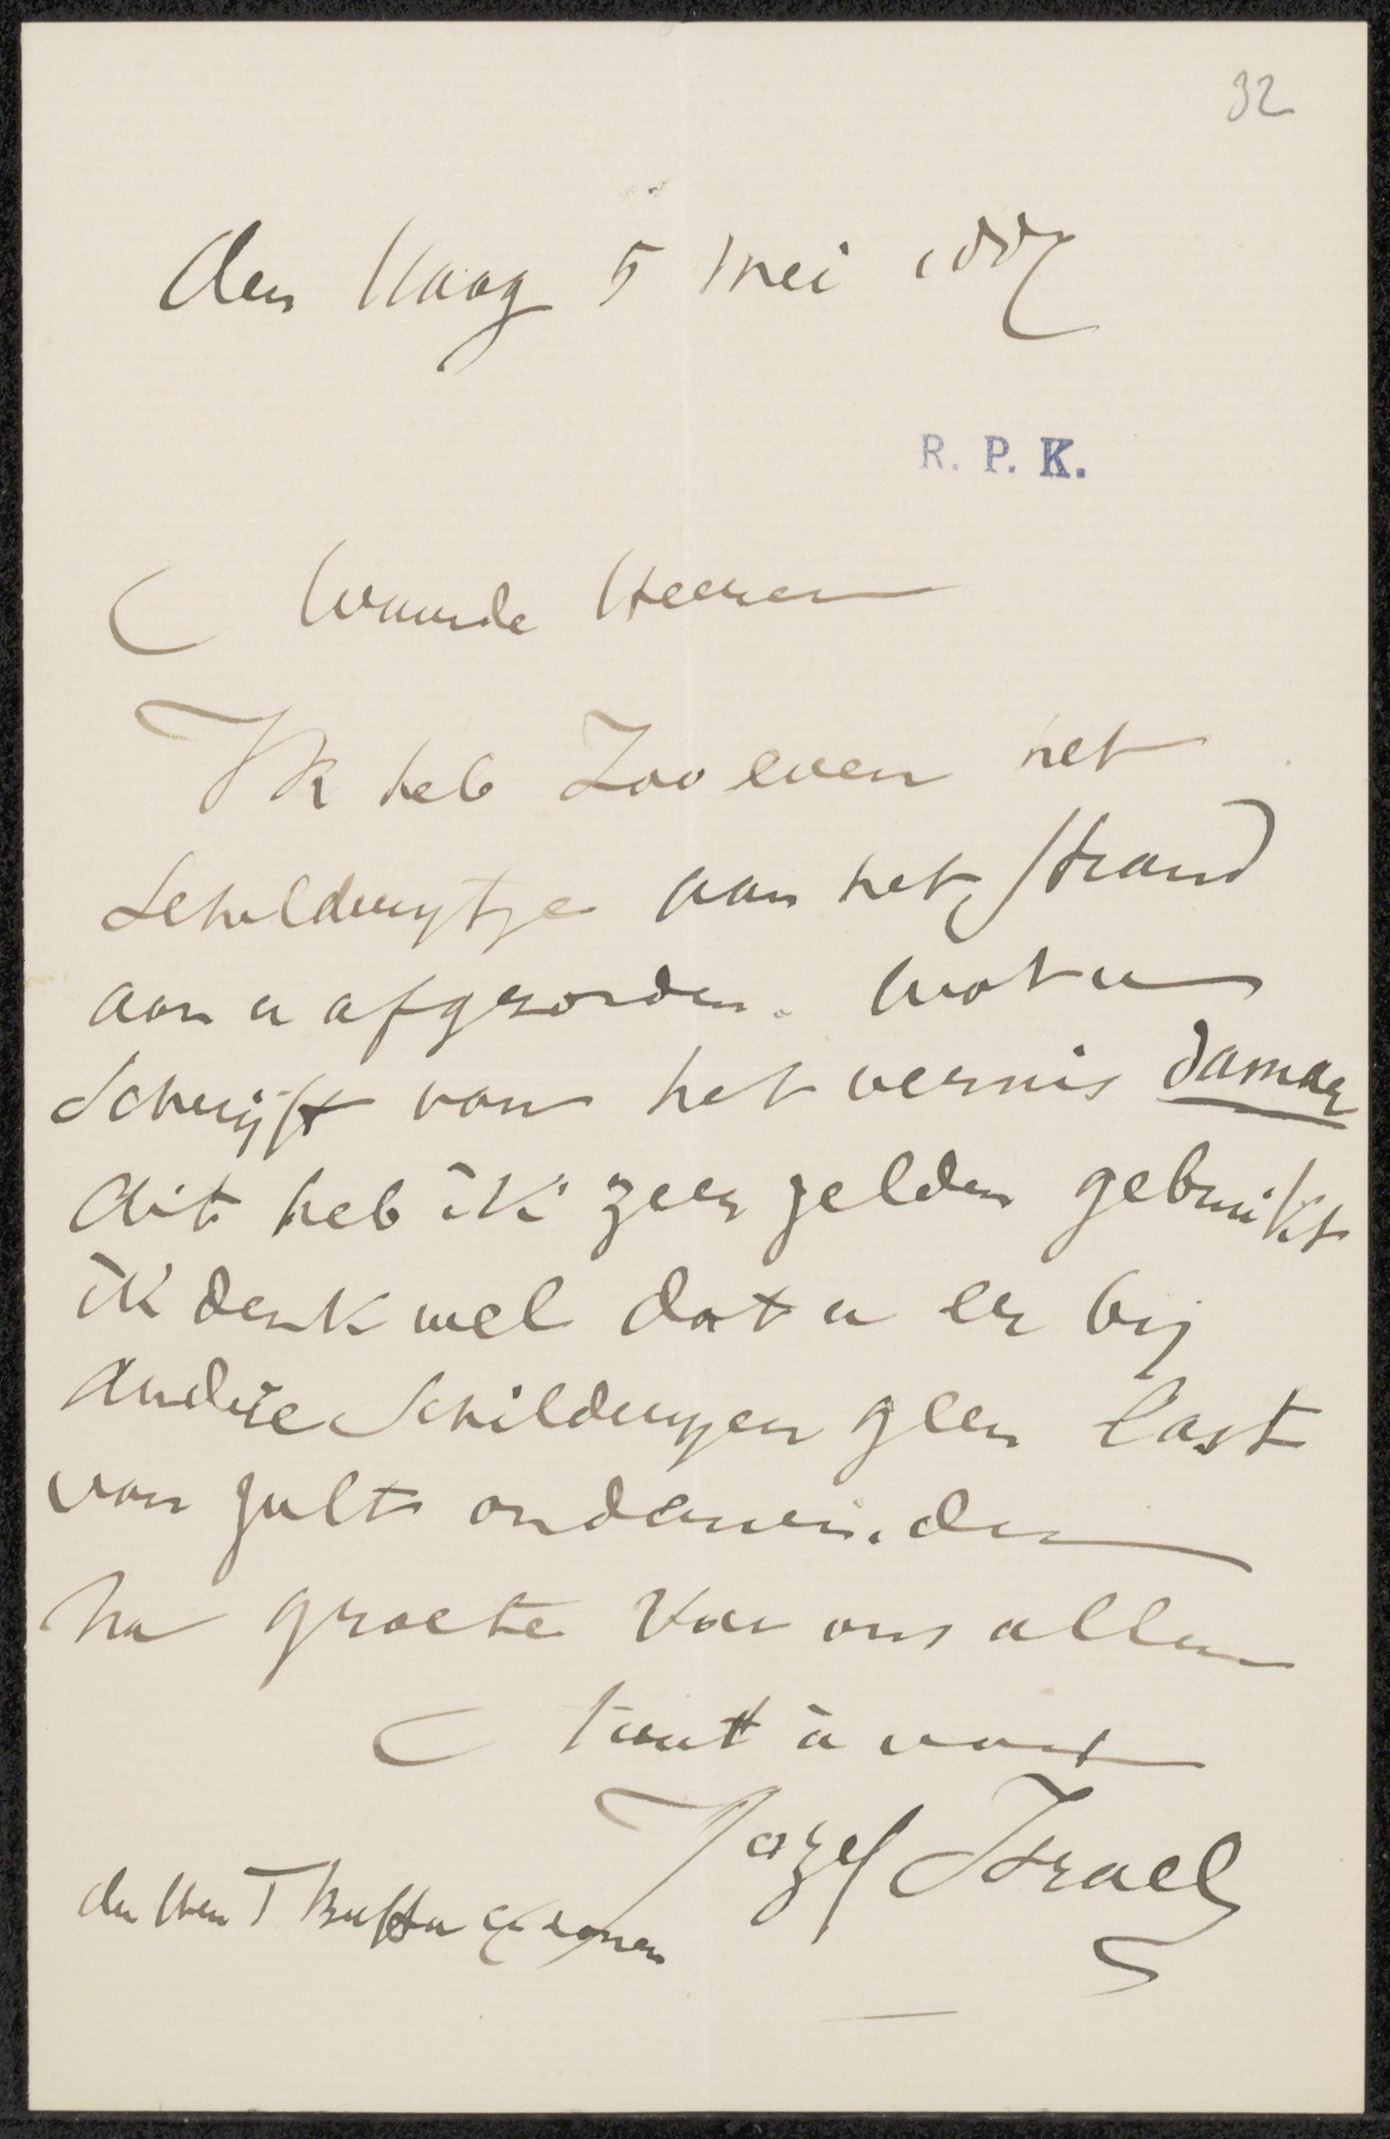 32
den Haag 5 mei 1887
R. P. K.
Waarde Heeren
Ik heb Zoo even het
Schilderijtje aan het Strand
aan u afgezonden. Wat u
Schrijft van het vernis damar
dit heb ik zeer zelden gebruikt
ik denk wel dat u er bij
andere Schilderijen geen last
van zult ondervinden
na groete van ons allen
tout à vous
Jozef Israels
den Heeren F Buffa & Zonen